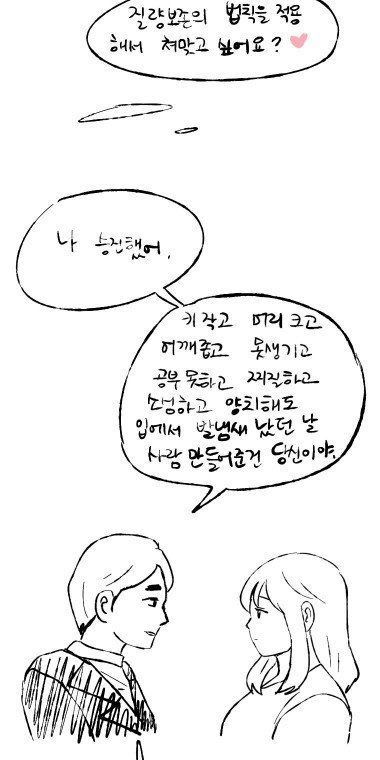 질량보존의 법칙을 적용
해서 쳐맞고 싶어요?
나 승진했어.
키 작고 머리 크고
어깨좁고 못생기고
공부 못하고 찌질하고
소심하고 양치해도
입에서 발냄새 났던 날
사람 만들어준건 당신이야.